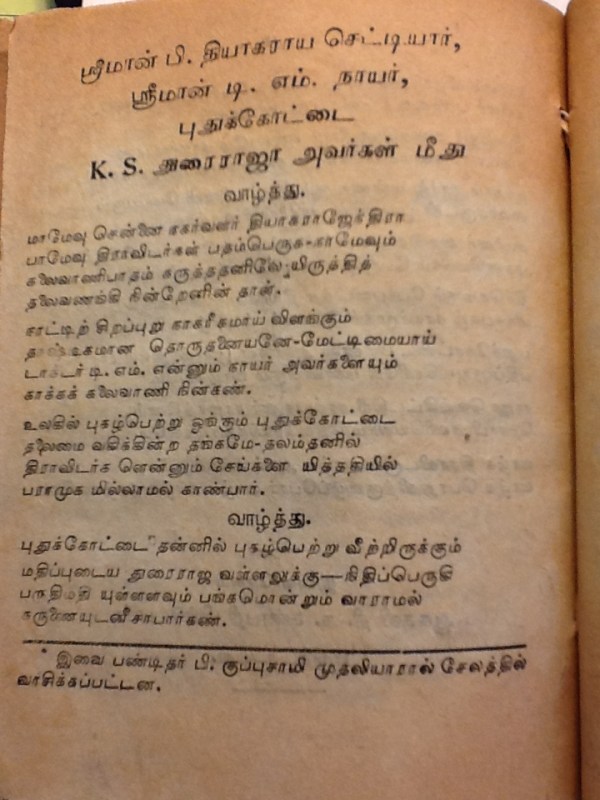 ஸ்ரீமான் பி. தியாகராய செட்டியார்,
ஸ்ரீமான் டி. எம். நாயர்,
புதுக்கோட்டை
K. S. துரைராஜா அவர்கள் மீது
வாழ்த்து.
மாமேவு சென்னை நகர்வளர் தியாகராஜேந்திரா
பாமேவு திராவிடர்கள் பதம்பெருக-நாமேவும்
கலைவாணிபாதம் கருத்ததனிலேயிருத்தித்
தலைவணங்கி நின்றேனின் தாள்.
நாட்டிற் சிறப்புறு நாகரீகமாய் விளங்கும்
தொருதனையனே-மேட்டிமையாய்
டாக்டர் டி. எம். என்னும் நாயர் அவர்களையும்
காக்கக் கலைவாணி நின்கண்.
உலகில் புகழ்பெற்று ஓங்கும் புதுக்கோட்டை
தலைமை வகிக்கின்ற தங்கமே-தலம்தனில்
திராவிடர்க ளென்னும் சேய்களை யித்ததியில்
பராமுக மில்லாமல் காண்பார்.
வாழ்த்து.
புதுக்கோட்டை தன்னில் புகழ்பெற்று வீற்றிருக்கும்
மதிப்புடைய துரைராஜ வள்ளலுக்கு—நிதிப்பெருகி
யுள்ளளவும் பங்கமொன்றும் வாராமல்
கருணையுடவீசாபார்கண்.
* இவை பண்டிதர் பி. குப்புசாமி முதலியாரால் சேலத்தில்
வாசிக்கப்பட்டன.